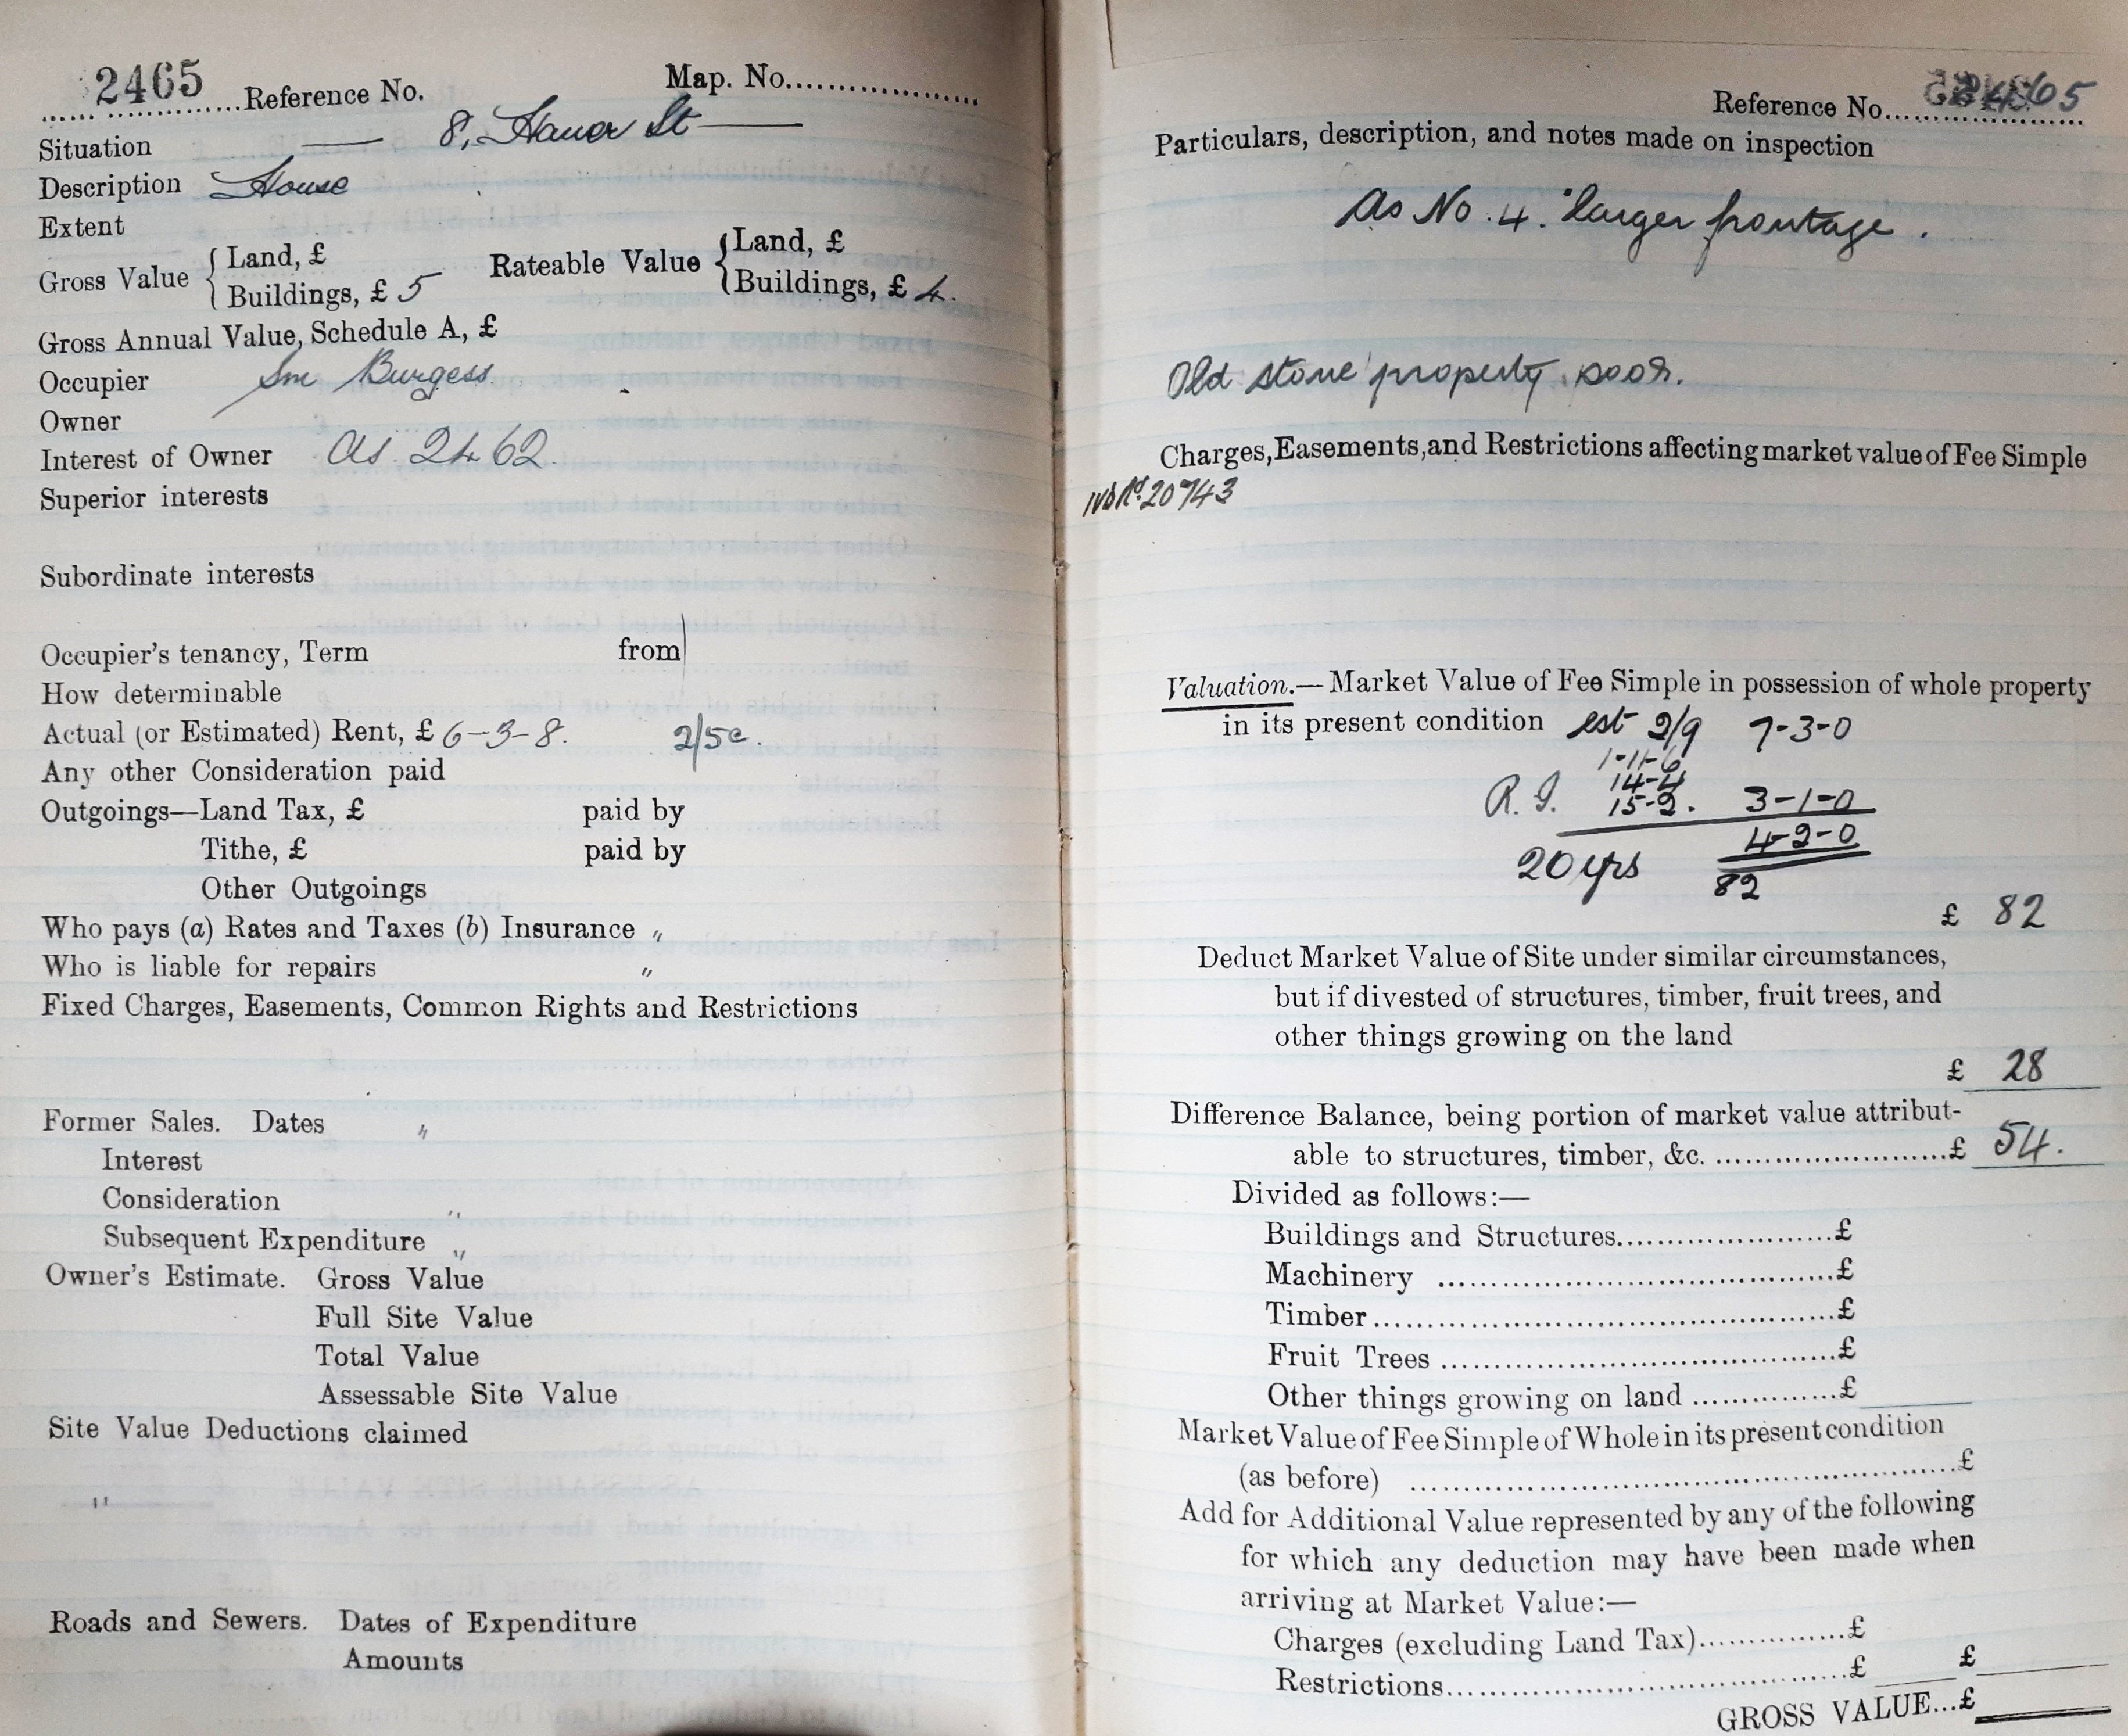 2465 Reference No. Map. No.
Situation — 8, St —
Description House
Extent
Gross Value { Land, £ Rateable Value { Land, £
Buildings, £ 5 Buildings, £ 4.
Gross Annual Value, Schedule A, £
Occupier Burgess
Owner
Interest of Owner as 2462
Superior interests
Subordinate interests
Occupier's tenancy, Term from
How determinable
Actual (or Estimated) Rent, £ 6-3-8. 2/5
Any other Consideration paid
Outgoings—Land Tax, £ paid by
Tithe, £ paid by
Other Outgoings
Who pays (a) Rates and Taxes (b) Insurance "
Who is liable for repairs "
Fixed Charges, Easements, Common Rights and Restrictions
Former Sales. Dates "
Interest
Consideration "
Subsequent Expenditure "
Owner's Estimate. Gross Value
Full Site Value
Total Value
Assessable Site Value
Site Value Deductions claimed
"
Roads and Sewers. Dates of Expenditure
Amounts
Reference No. 2465
Particulars, description, and notes made on inspection
As No. 4. larger frontage.
Old stone property, poor.
Charges, Easements, and Restrictions affecting market value of Fee Simple
20743
Valuation.—Market Value of Fee Simple in possession of whole property
in its present condition est 2/9 7-3-0
1-11-6
14-4
R. I. 15-2. 3-1-0
4-2-0
20 yrs 82
£ 82
Deduct Market Value of Site under similar circumstances,
but if divested of structures, timber, fruit trees, and
other things growing on the land
£ 28
Difference Balance, being portion of market value attribut-
able to structures, timber, &c. £ 54.
Divided as follows:—
Buildings and Structures £
Machinery £
Timber £
Fruit Trees £
Other things growing on land £
Market Value of Fee Simple of Whole in its present condition
(as before) £
Add for Additional Value represented by any of the following
for which any deduction may have been made when
arriving at Market Value:—
Charges (excluding Land Tax) £
Restrictions £ £
GROSS VALUE...£